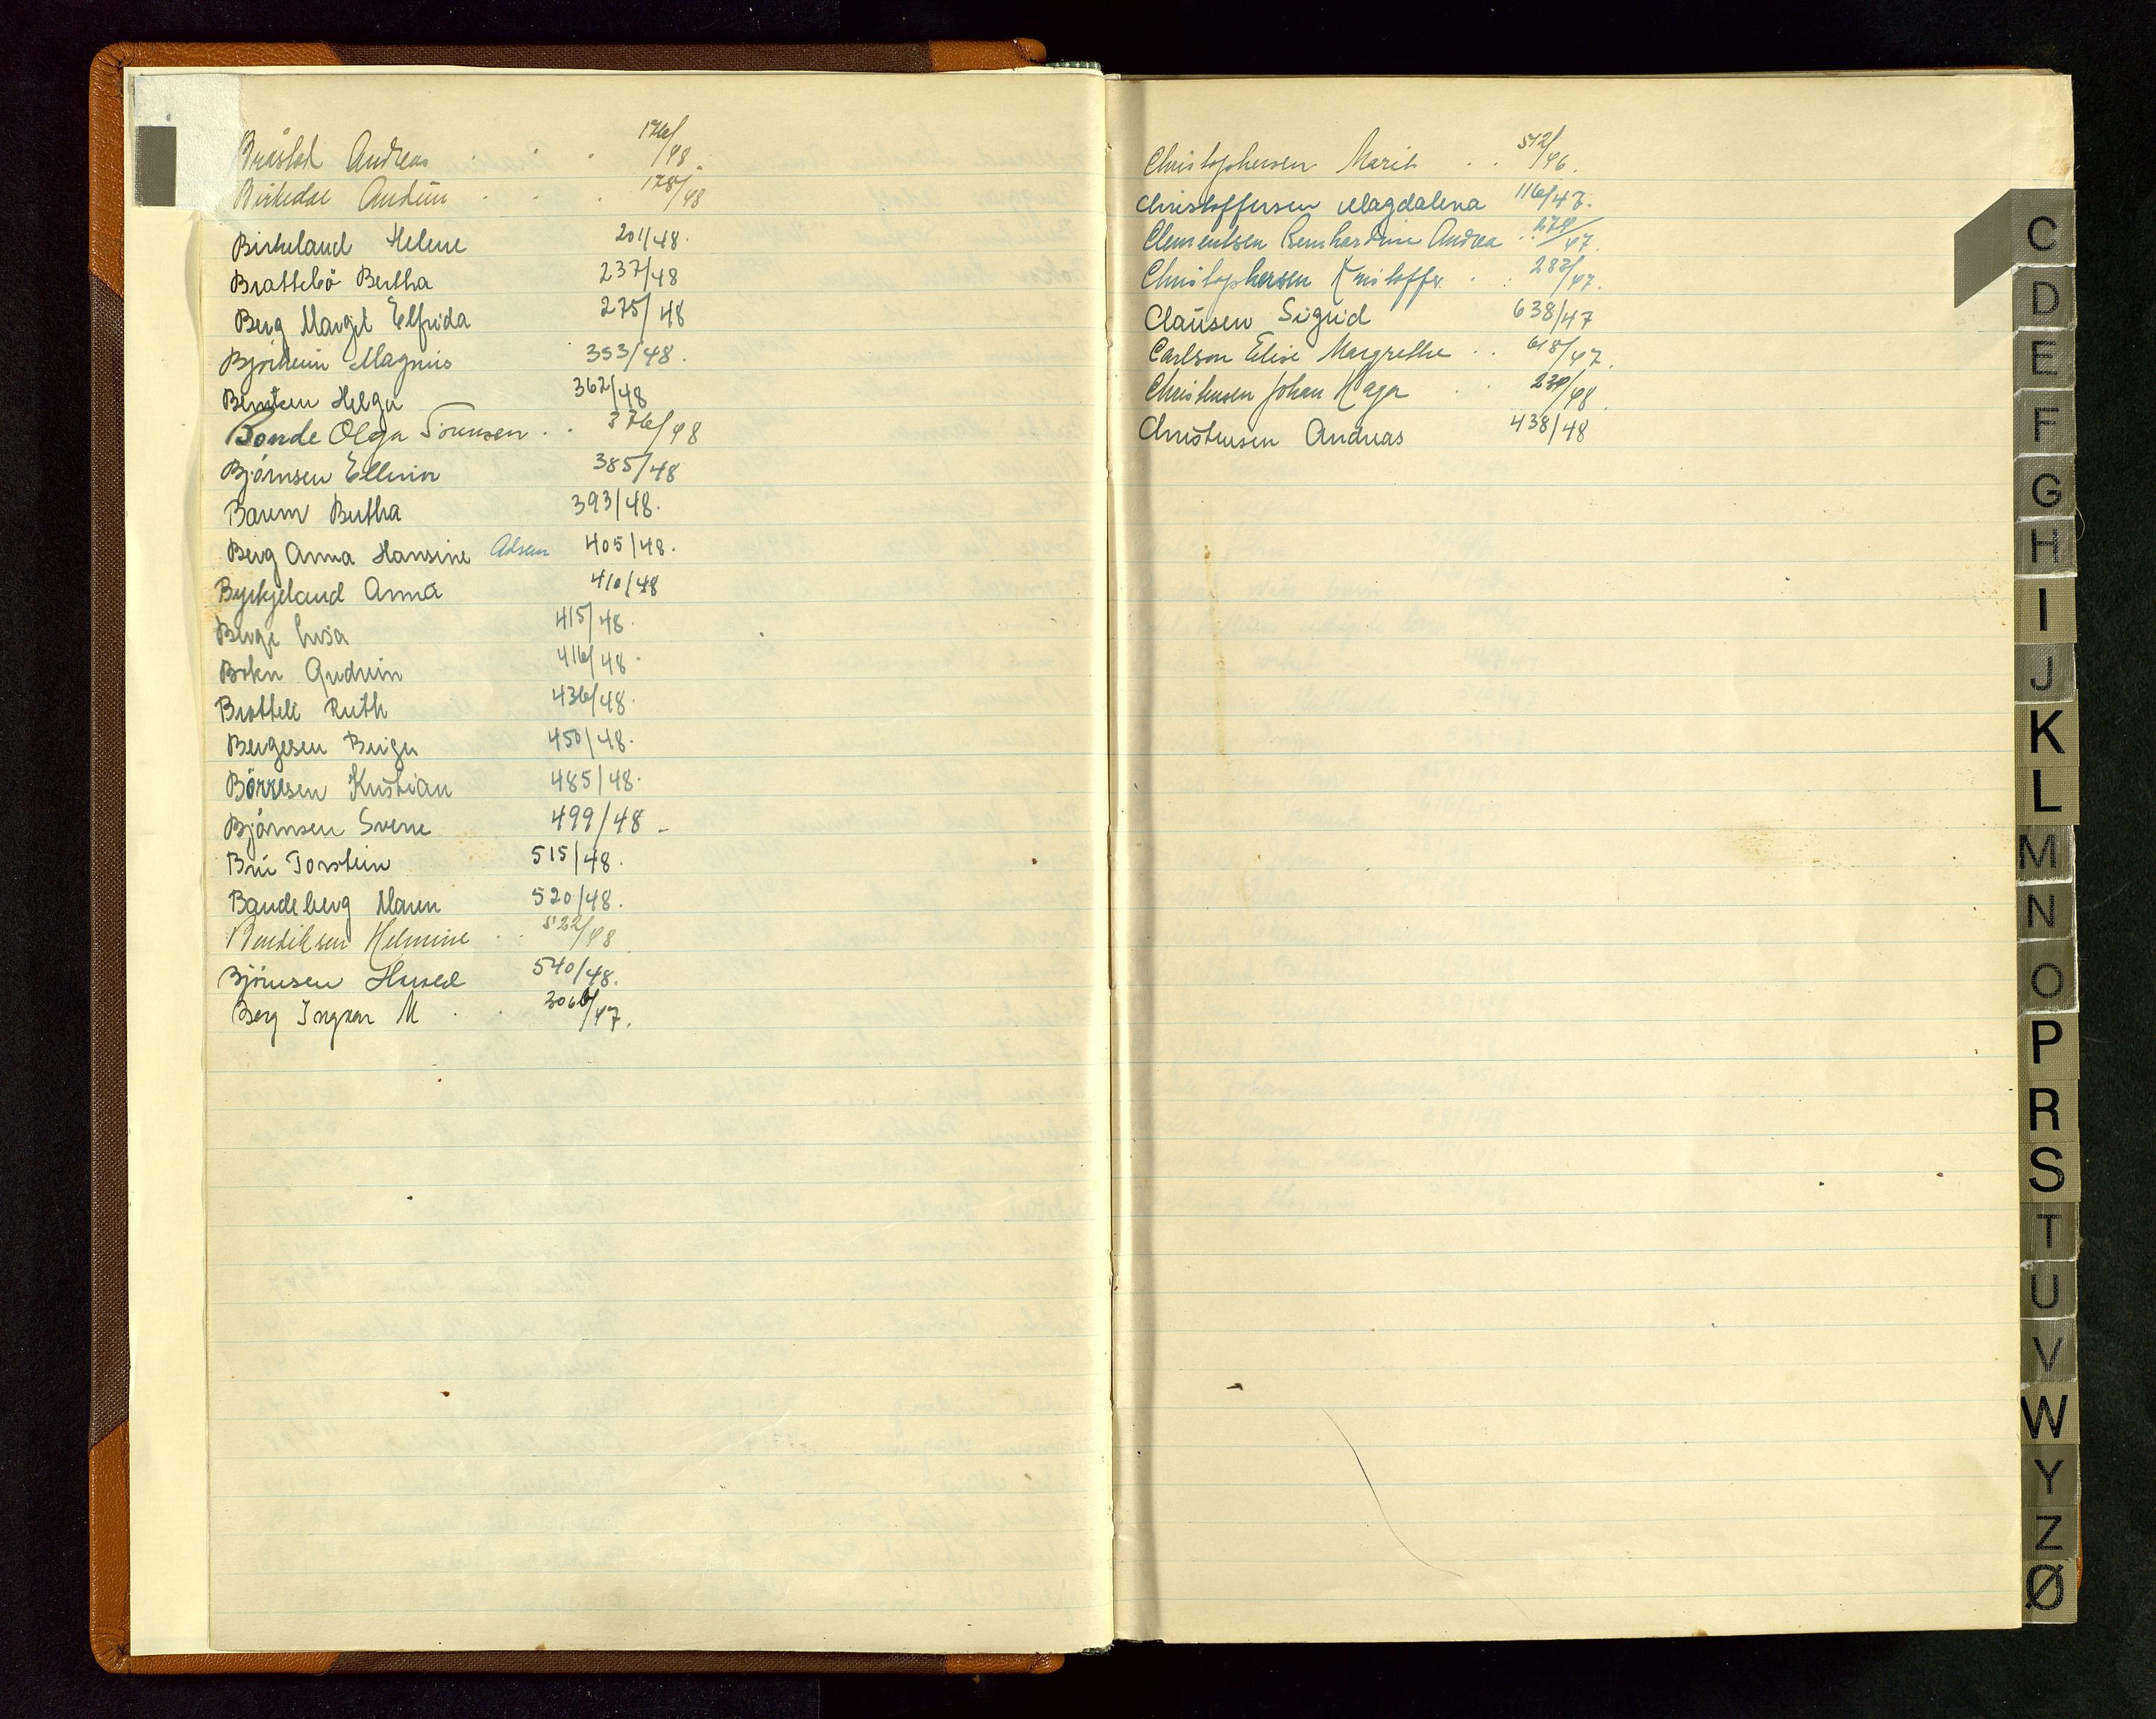 Bråstad Andreas . . . 176/48.
Birkedal Audun . . . 178/48
Birkeland Helene 201/48.
Brattebö Bertha 237/48
Berg Margit Elfrida 275/48
Björheim Magnus 353/48.
Berntsen Helga 362/48
Bonde Olga Sörensen . . 376/48
Björnsen Ellinor 385/48
Barem Bertha 393/48.
Berg Anna Hansine 405/48.
Byrkjeland Anna 410/48
Berge Lusa 415/48.
Boken Gudrun 416/48.
Brotteli Ruth 436/48.
Bergesen Birger 450/48.
Börresen Kristian 485/48.
Björnsen Sverre 499/48 -
Bru Torstein 515/48.
Bandeberg Maren 520/48.
Bendiksen Helmine . . 522/48
Björnsen Harald 540/48.
Berg Ingvar M . . 306/47.
Christophersen Marit . . 572/46.
Christoffersen Magdalena 116/47.
Clementsen Bernhardine Andrea . . 274/47.
Christophersen Kristoffer . . 283/47.
Clausen Sigrid 638/47
Carlson Elise Margrethe . . 618/47.
Christensen Johan Haga . . 230/48.
Christensen Andreas 438/48
C
D
E
F
G
H
I
J
K
L
M
N
O
P
R
S
T
U
V
W
Y
Z
Ø